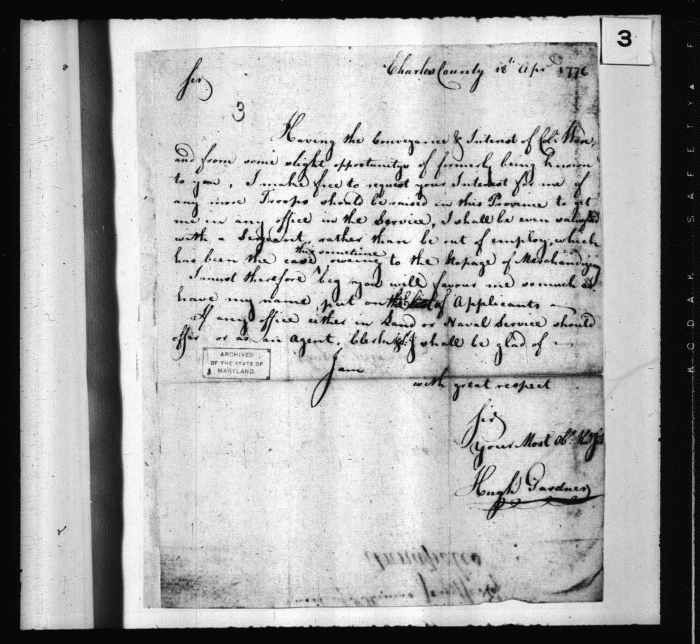 3
Charles County 18th Apr 1776
Sir
3
Having the Conveyance & Interest of Col: Ware,
and from some slight opportunitys of formerly being known
to you, I make free to request your Interest for me if
any more Troops should be raised in this Province to get
me in any office in the Service, I shall be even satisfied
with a Sergeant, rather than be out of employ, which
has been the case this sometime owening to the Stopage of Merchandizing
I must therefore beg you will favour me so much as
have my name put on the list of Applicants
If any office either in Land or Naval Service should
offer or as an Agent, Clerk &c. I shall be glad of
ARCHIVES
OF THE STATE OF
MARYLAND.
I am
with great respect
Sir
Your Most Obt.
Hugh Gardner
Annapolis
KODAK SAFETY F